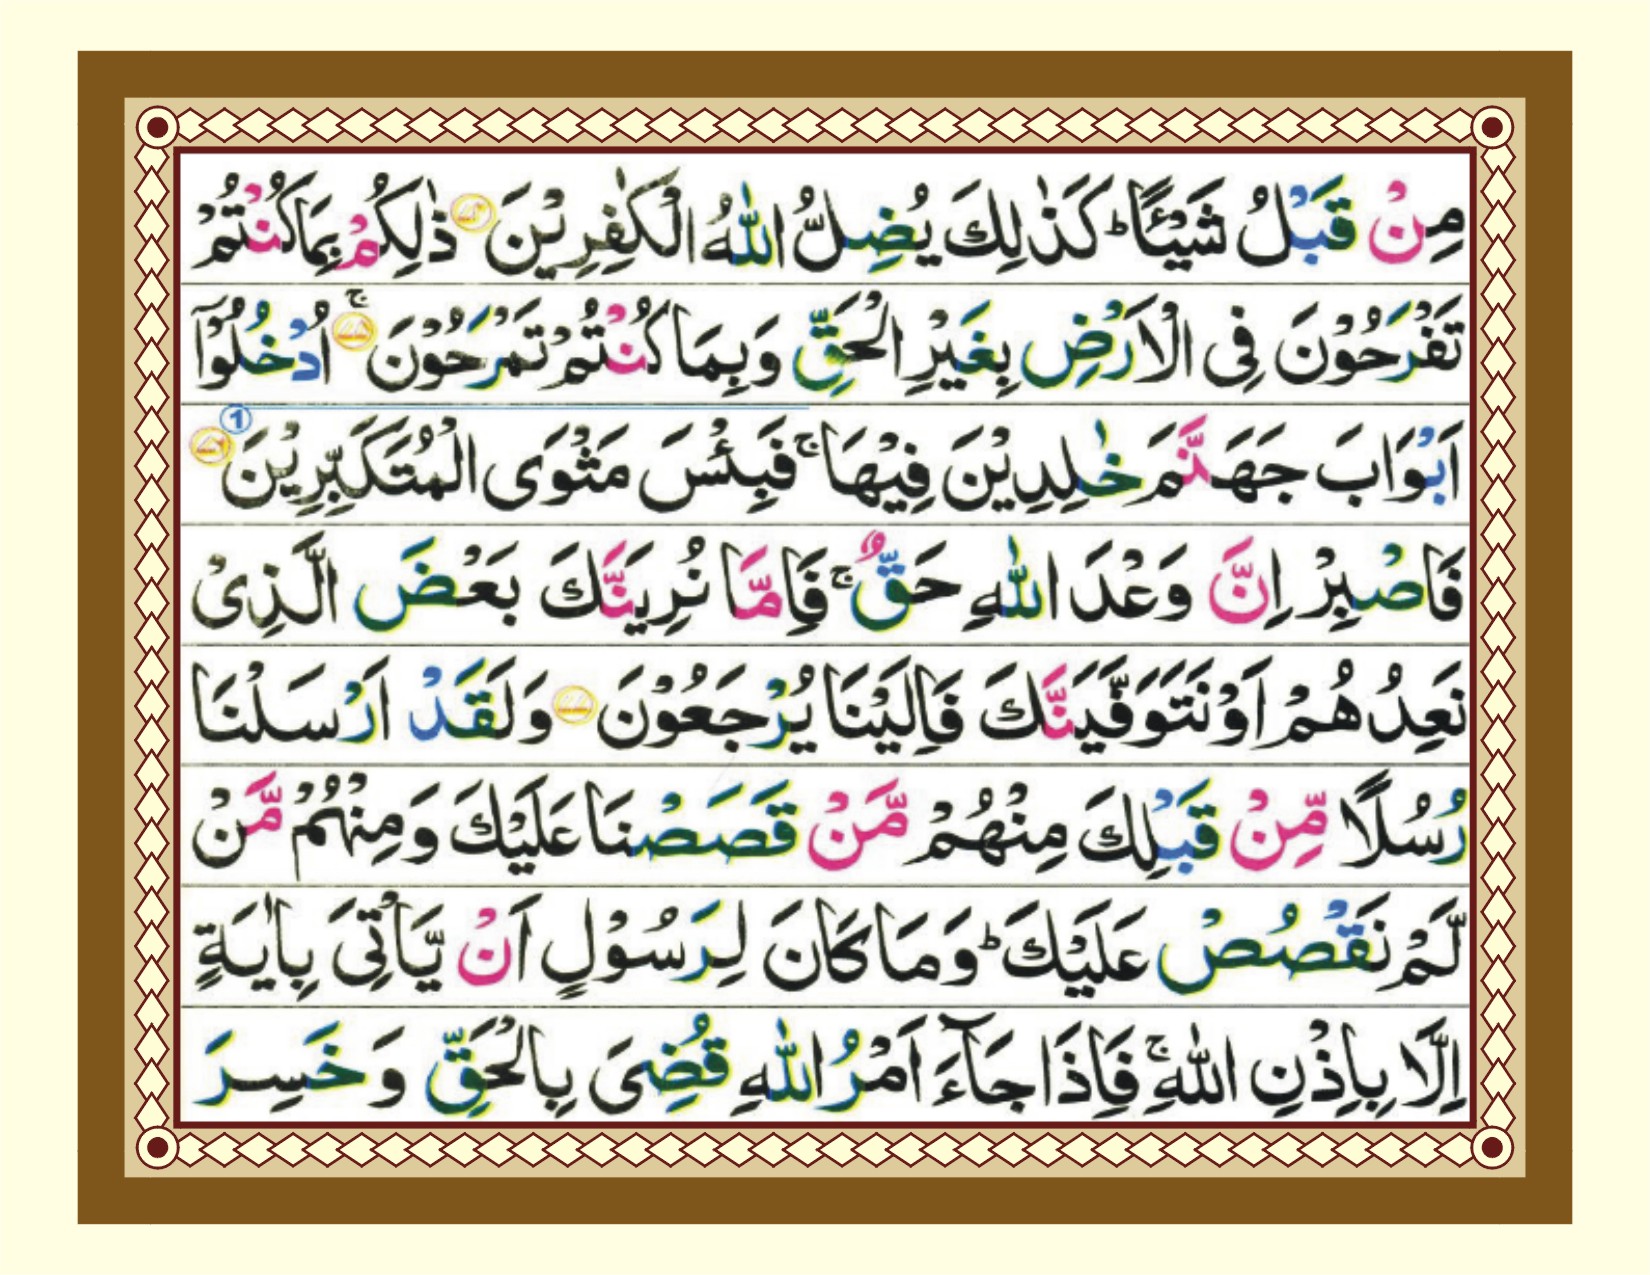 مِنْ قَبْلُ شَيْـًٔا ؕ كَذٰلِكَ يُضِلُّ اللّٰهُ الْكٰفِرِيْنَ ۝ ذٰلِكُمْ بِمَا كُنْتُمْ
تَفْرَحُوْنَ فِى الْاَرْضِ بِغَيْرِ الْحَقِّ وَبِمَا كُنْتُمْ تَمْرَحُوْنَ ۝ۚ اُدْخُلُوْۤا
اَبْوَابَ جَهَنَّمَ خٰلِدِيْنَ فِيْهَا ۚ فَبِئْسَ مَثْوَى الْمُتَكَبِّرِيْنَ ۝ 1
فَاصْبِرْ اِنَّ وَعْدَ اللّٰهِ حَقٌّ ۚ فَاِمَّا نُرِيَنَّكَ بَعْضَ الَّذِىْ
نَعِدُهُمْ اَوْ نَتَوَفَّيَنَّكَ فَاِلَيْنَا يُرْجَعُوْنَ ۝ وَلَقَدْ اَرْسَلْنَا
رُسُلًا مِّنْ قَبْلِكَ مِنْهُمْ مَّنْ قَصَصْنَا عَلَيْكَ وَمِنْهُمْ مَّنْ
لَّمْ نَقْصُصْ عَلَيْكَ ؕ وَمَا كَانَ لِرَسُوْلٍ اَنْ يَّاْتِىَ بِاٰيَةٍ
اِلَّا بِاِذْنِ اللّٰهِ ۚ فَاِذَا جَآءَ اَمْرُ اللّٰهِ قُضِىَ بِالْحَقِّ وَخَسِرَ